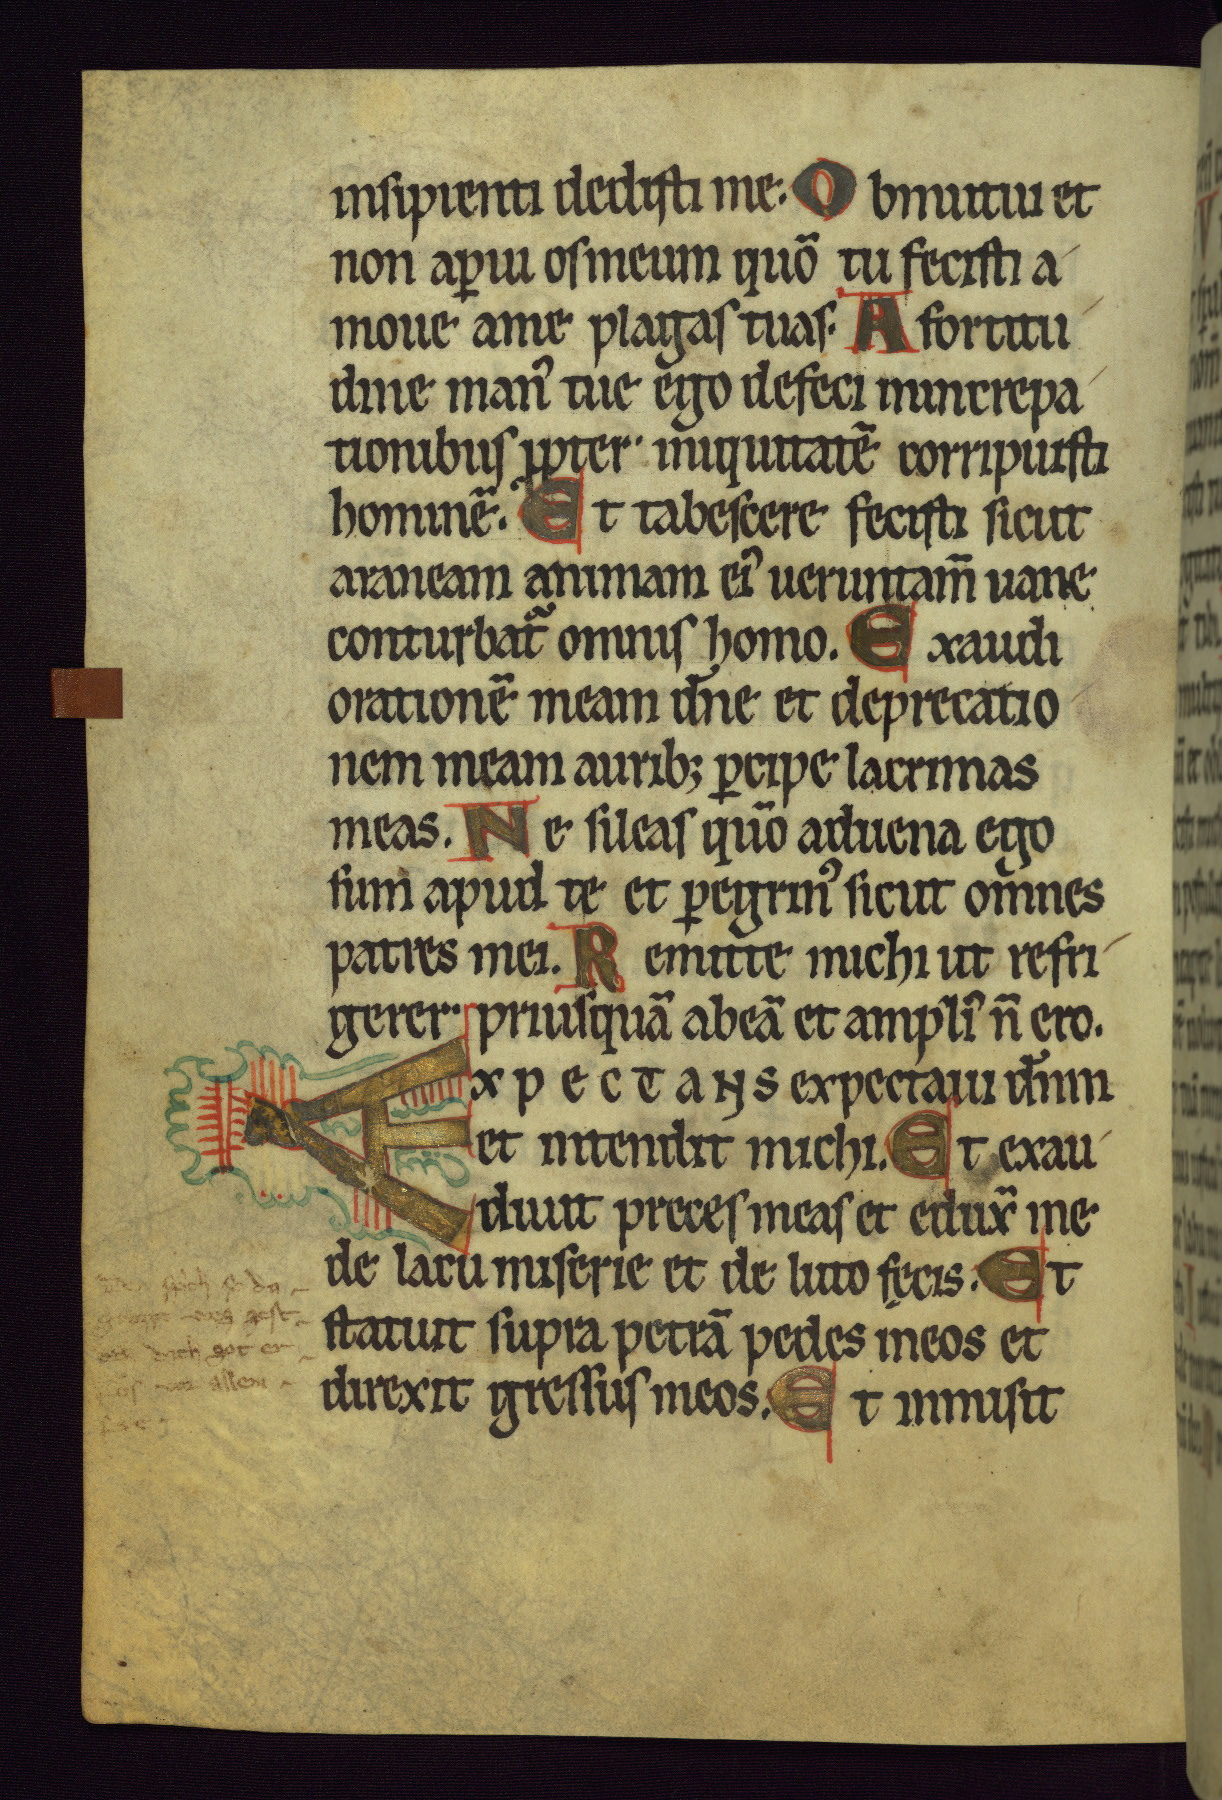 insipienti dedisti me. Obmutui et
non aꝑui os meum quō tu fecisti a
moue a me plagas tuas. A fortitu
dine manꝰ tue ego defeci in increpa
tionibus ꝓpter iniquitatē corripuisti
hominē. Et tabescere fecisti sicut
araneam animam eiꝰ ueruntam̄ uane
conturbat᷑ omnis homo. Exaudi
orationē meam dn̄e et deprecatio
nem meam aurib; ꝑcipe lacrimas
meas. Ne sileas quō aduena ego
sum apud te et ꝑegrinꝰ sicut om̄nes
patres mei. Remitte michi ut refri
gerer priusquā abeā et ampliꝰ n̄ ero.
Expectans expectaui dn̄m
et intendit michi. Et exau
diuit preces meas et edux̄ me
de lacu miserie et de luto fęcis. Et
statuit supra petrā pedes meos et
direxit gressus meos. Et inmisit
got er
vor allem